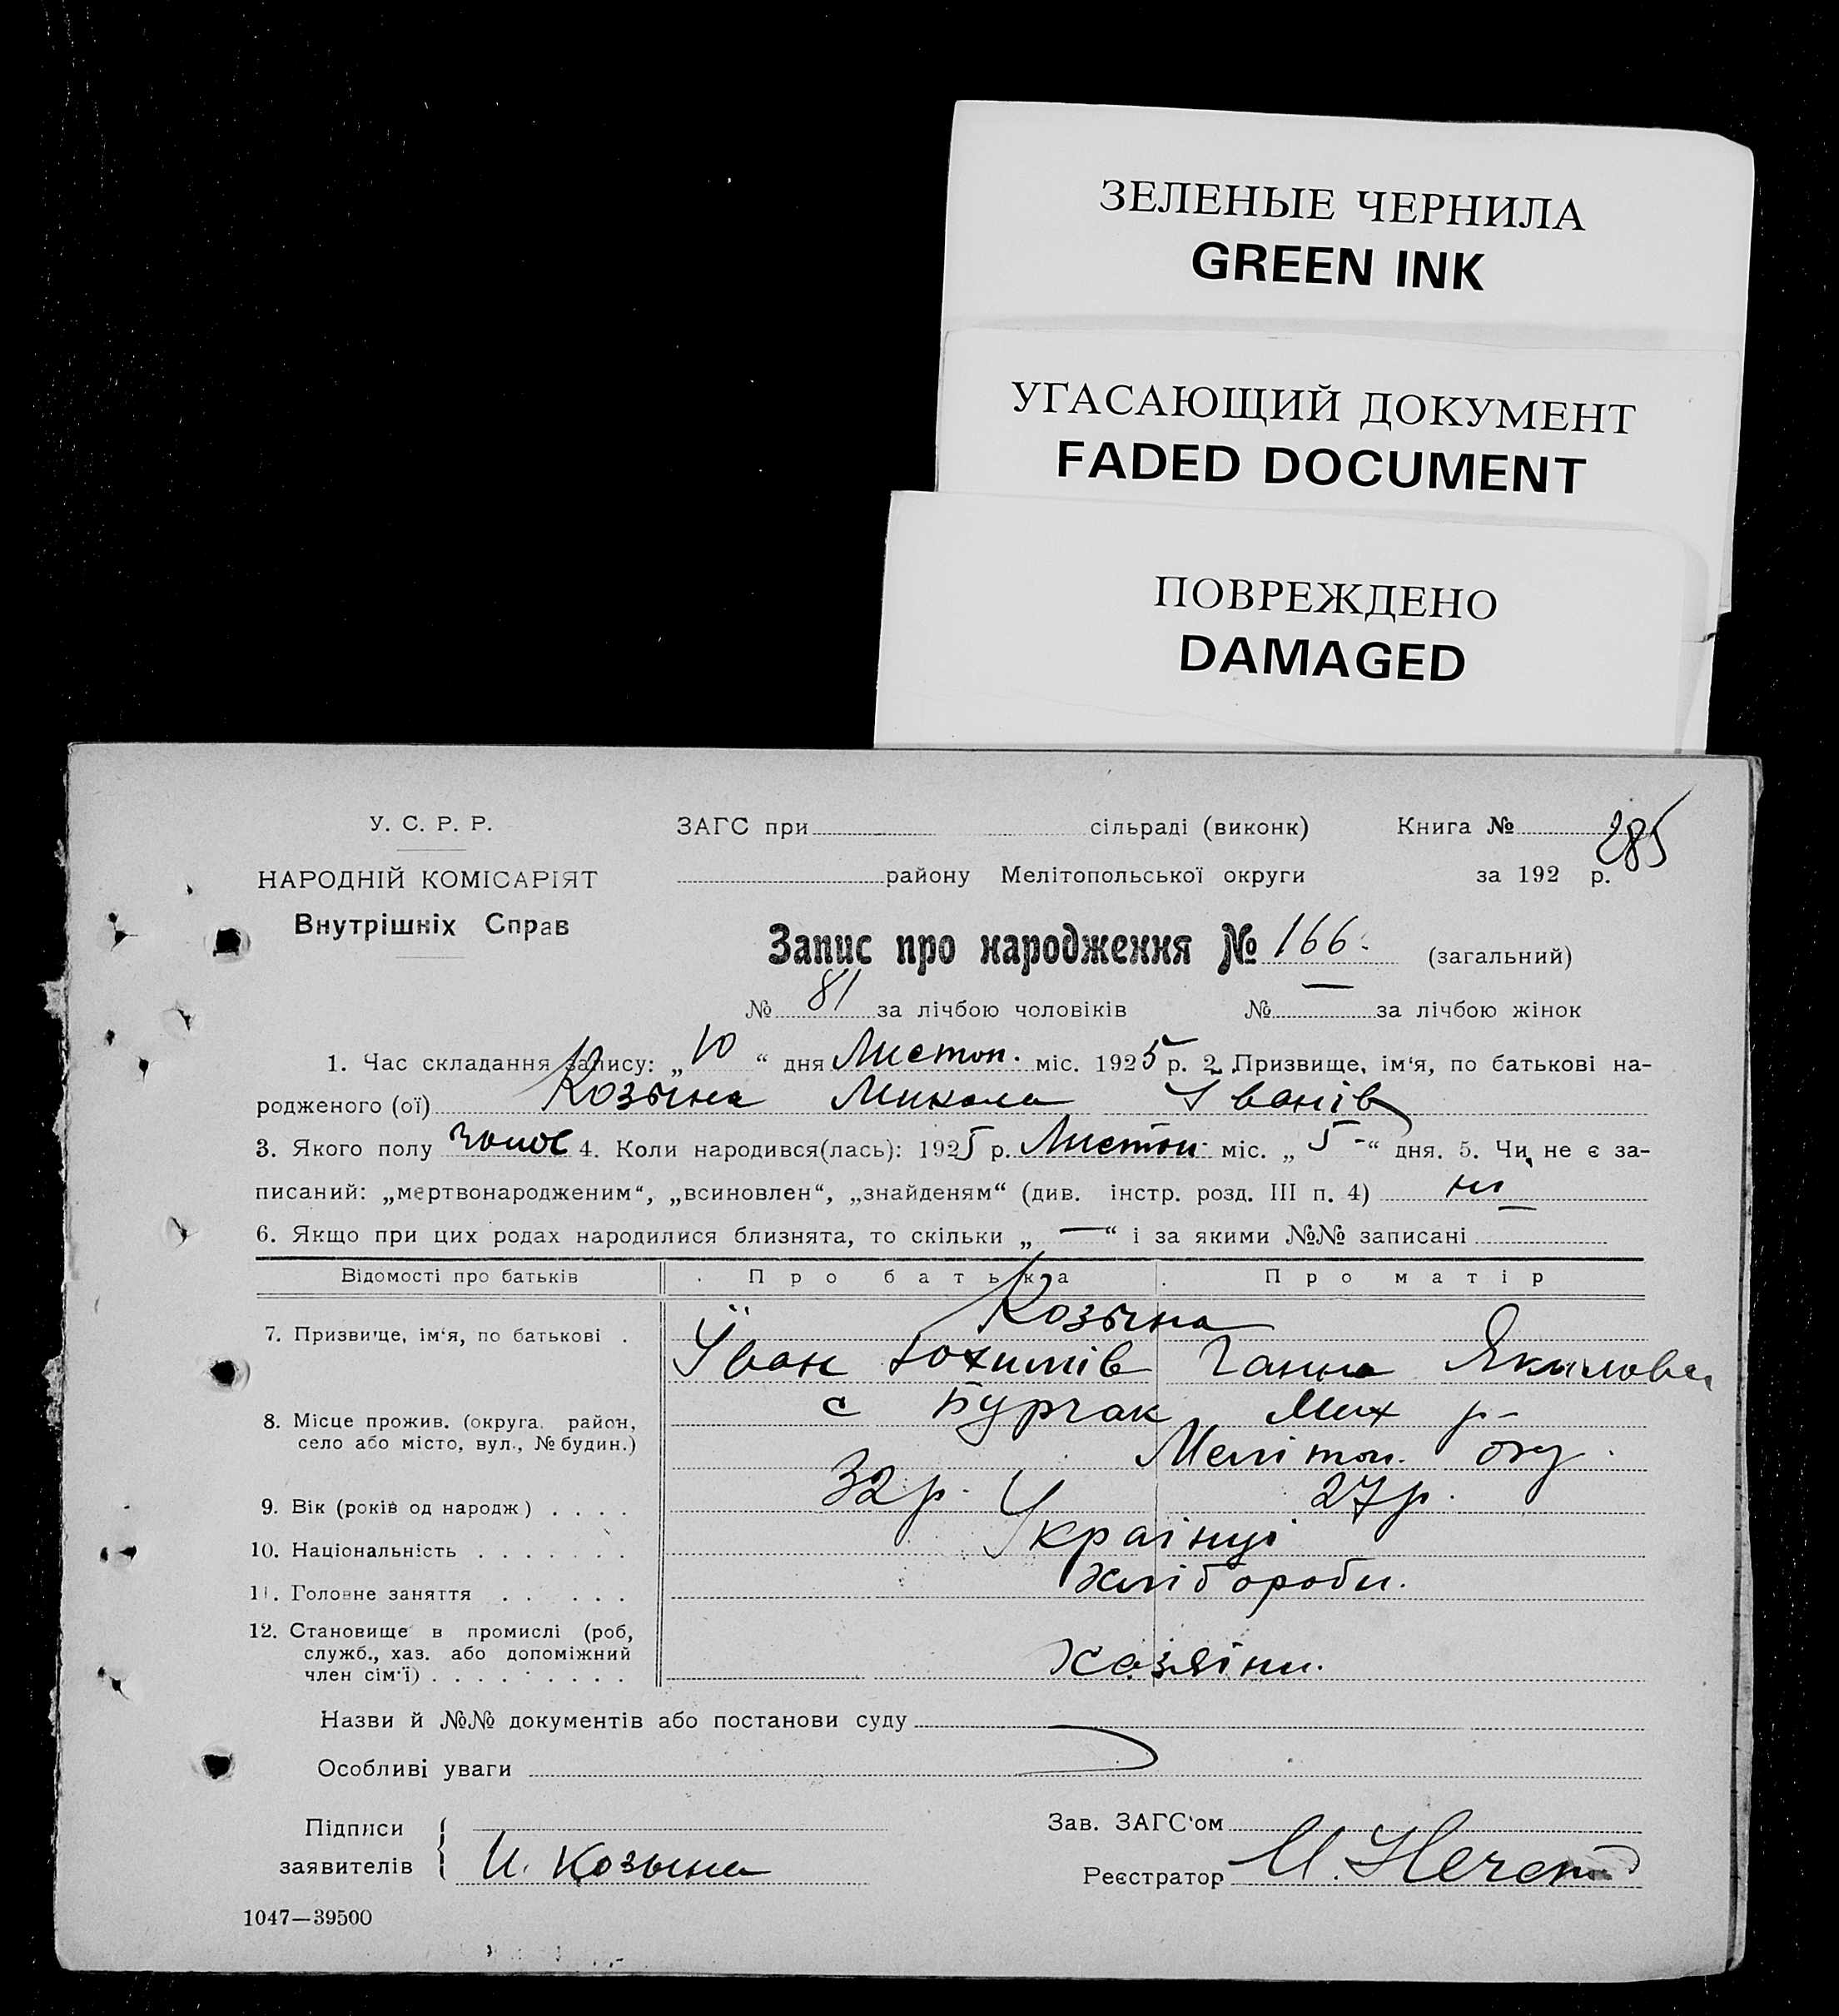 ЗЕЛЕНЫЕ ЧЕРНИЛА
GREEN INK
УГАСАЮЩИЙ ДОКУМЕНТ
FADED DOCUMENT
ПОВРЕЖДЕНО
DAMAGED
У. С. Р. Р. ЗАГС при сільраді (виконк) Книга № 285
НАРОДНІЙ КОМІСАРІЯТ району Мелітопольської округи за 192 р.
Внутрішніх Справ
Запис про народження № 166. (загальний)
№ 81 за лічбою чоловіків № — за лічбою жінок
1. Час складання запису: „10“ дня Листоп. міс. 1925 р. 2. Призвище, ім‘я, по батькові на-
родженого (ої) Козына Микола Іванів
3. Якого полу 4. Коли народився(лась): 1925 р. Листоп міс. „5-“ дня. 5. Чи не є за-
писаний: „мертвонародженим“, „всиновлен“, „знайденям“ (див. інстр. розд. III п. 4) ні
6. Якщо при цих родах народилися близнята, то скільки „—“ і за якими №№ записані
Відомості про батьків Про батька Про матір
7. Призвище, ім‘я, по батькові . Козына
Іван Юхимів Ганна Якимова
8. Місце прожив. (округа, район, с Бурчак Мих р-
село або місто, вул., № будин.) Меліт. окр.
9. Вік (років од народж) . . . . 32 р. 27 р.
10. Національність . . . . . . . Українці
11. Головне заняття . . . . . Хлібороби.
12. Становище в промислі (роб,
служб., хаз. або допоміжний
член сім‘ї) . . . . . . . . Хазяіни.
Назви й №№ документів або постанови суду
Особливі уваги
Підписи Зав. ЗАГС‘ом
заявителів И. Козына Реєстратор
1047—39500